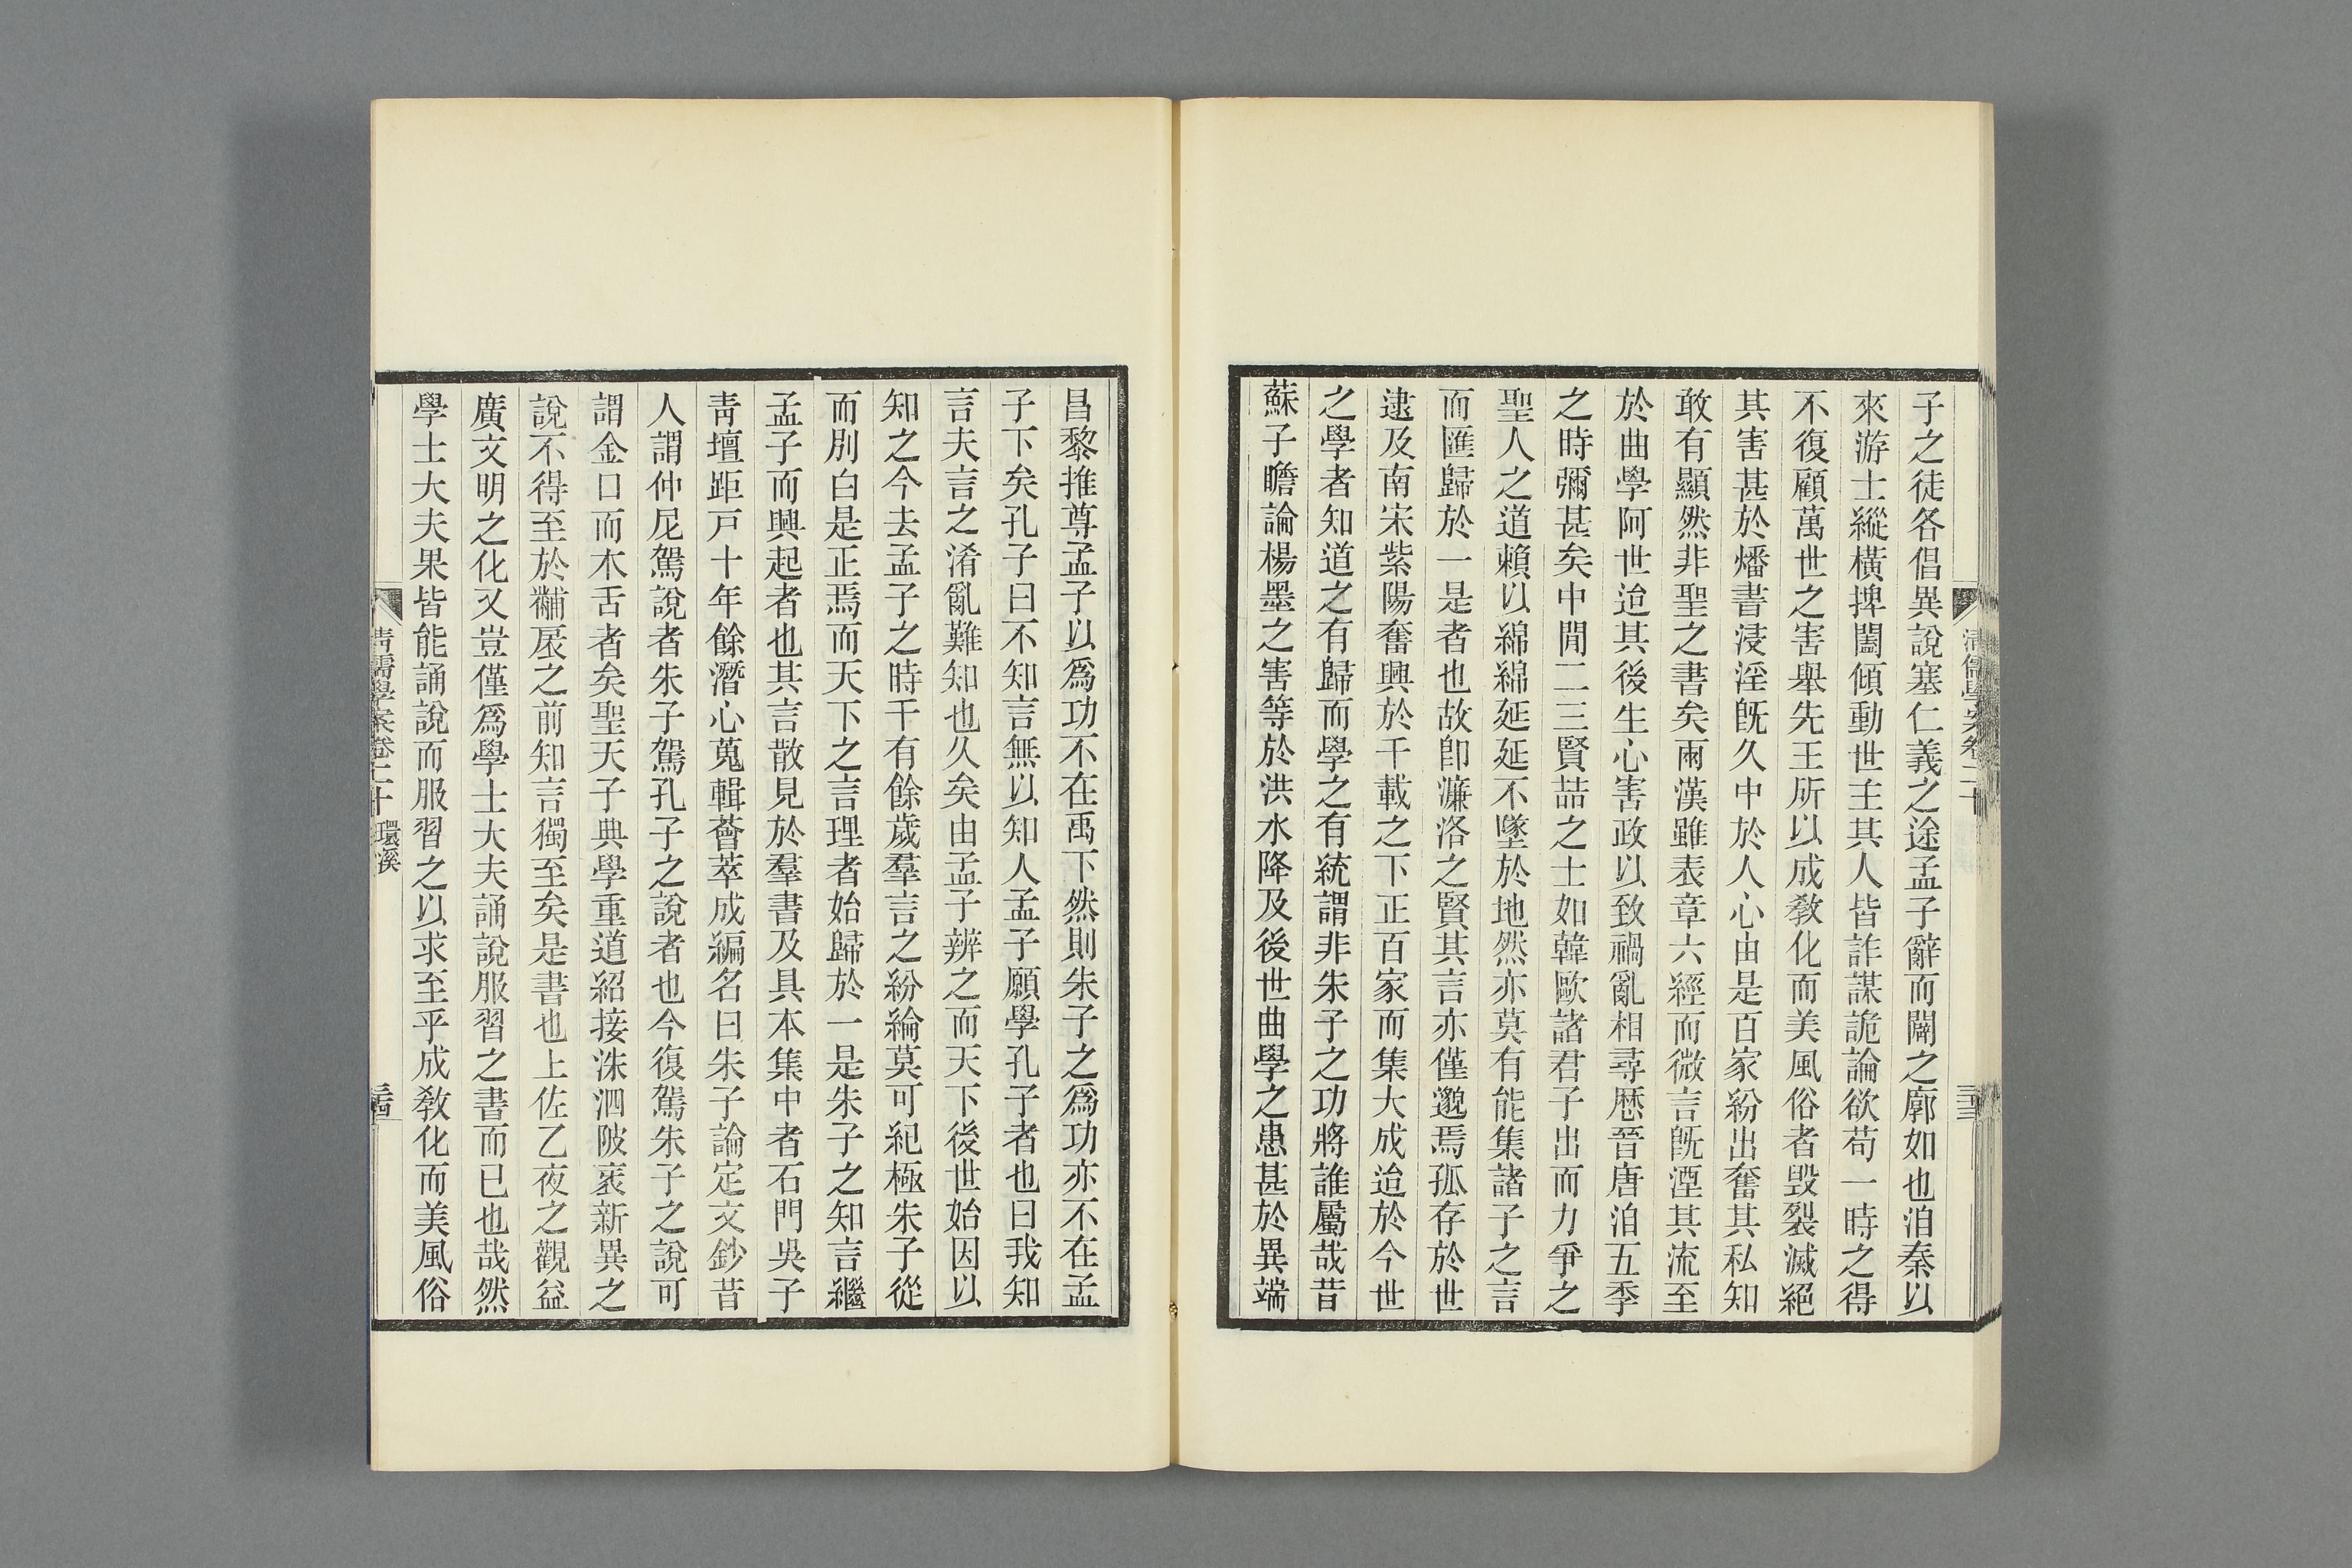 子之徒各倡異說塞仁義之途孟子辭而闢之廓如也洎秦以
來游士縱橫捭闔傾動世主其人皆詐謀詭論欲苟一時之得
不復顧萬世之害舉先王所以成敎化而美風俗者毀裂滅絕
其害甚於燔書浸淫旣久中於人心由是百家紛出奮其私知
敢有顯然非聖之書矣兩漢雖表章六經而微言旣湮其流至
於曲學阿世迨其後生心害政以致禍亂相尋歷晉唐洎五季
之時彌甚矣中閒一二三賢喆之士如韓歐諸君子出而力爭之
聖人之道賴以綿綿延延不墜於地然亦莫有能集諸子之言
而匯歸於一是者也故卽濂洛之賢其言亦僅邈焉孤存於世
逮及南宋紫陽奮興於千載之下正百家而集大成迨於今世
之學者知道之有歸而學之有統謂非朱子之功將誰屬哉昔
蘇子瞻論楊墨之害等於洪水降及後世曲學之患甚於異端
清儒學案卷二十
昌黎推尊孟子以爲功不在禹下然則朱子之爲功亦不在孟
子下矣孔子曰不知言無以知人孟子願學孔子者也曰我知
言夫言之淆亂難知也久矣由孟子辨之而天下後世始因以
知之今去孟子之時千有餘歲羣言之紛綸莫可紀極朱子從
而別白是正焉而天下之言理者始歸於一是朱子之知言繼
孟子而興起者也其言散見於羣書及具本集中者石門吳子
靑壇距戶十年餘潛心蒐輯薈萃成編名曰朱子論定文鈔昔
人謂仲尼駕說者朱子駕孔子之說者也今復駕朱子之說可
謂金口而木舌者矣聖天子典學重道紹接洙泗陂衺新異之
說不得至於黼扆之前知言獨至矣是書也上佐乙夜之觀益
廣文明之化又豈僅爲學士大夫誦說服習之書而已也哉然
學士大夫果皆能誦說而服習之以求至乎成敎化而美風俗
清儒學案卷二十 環溪